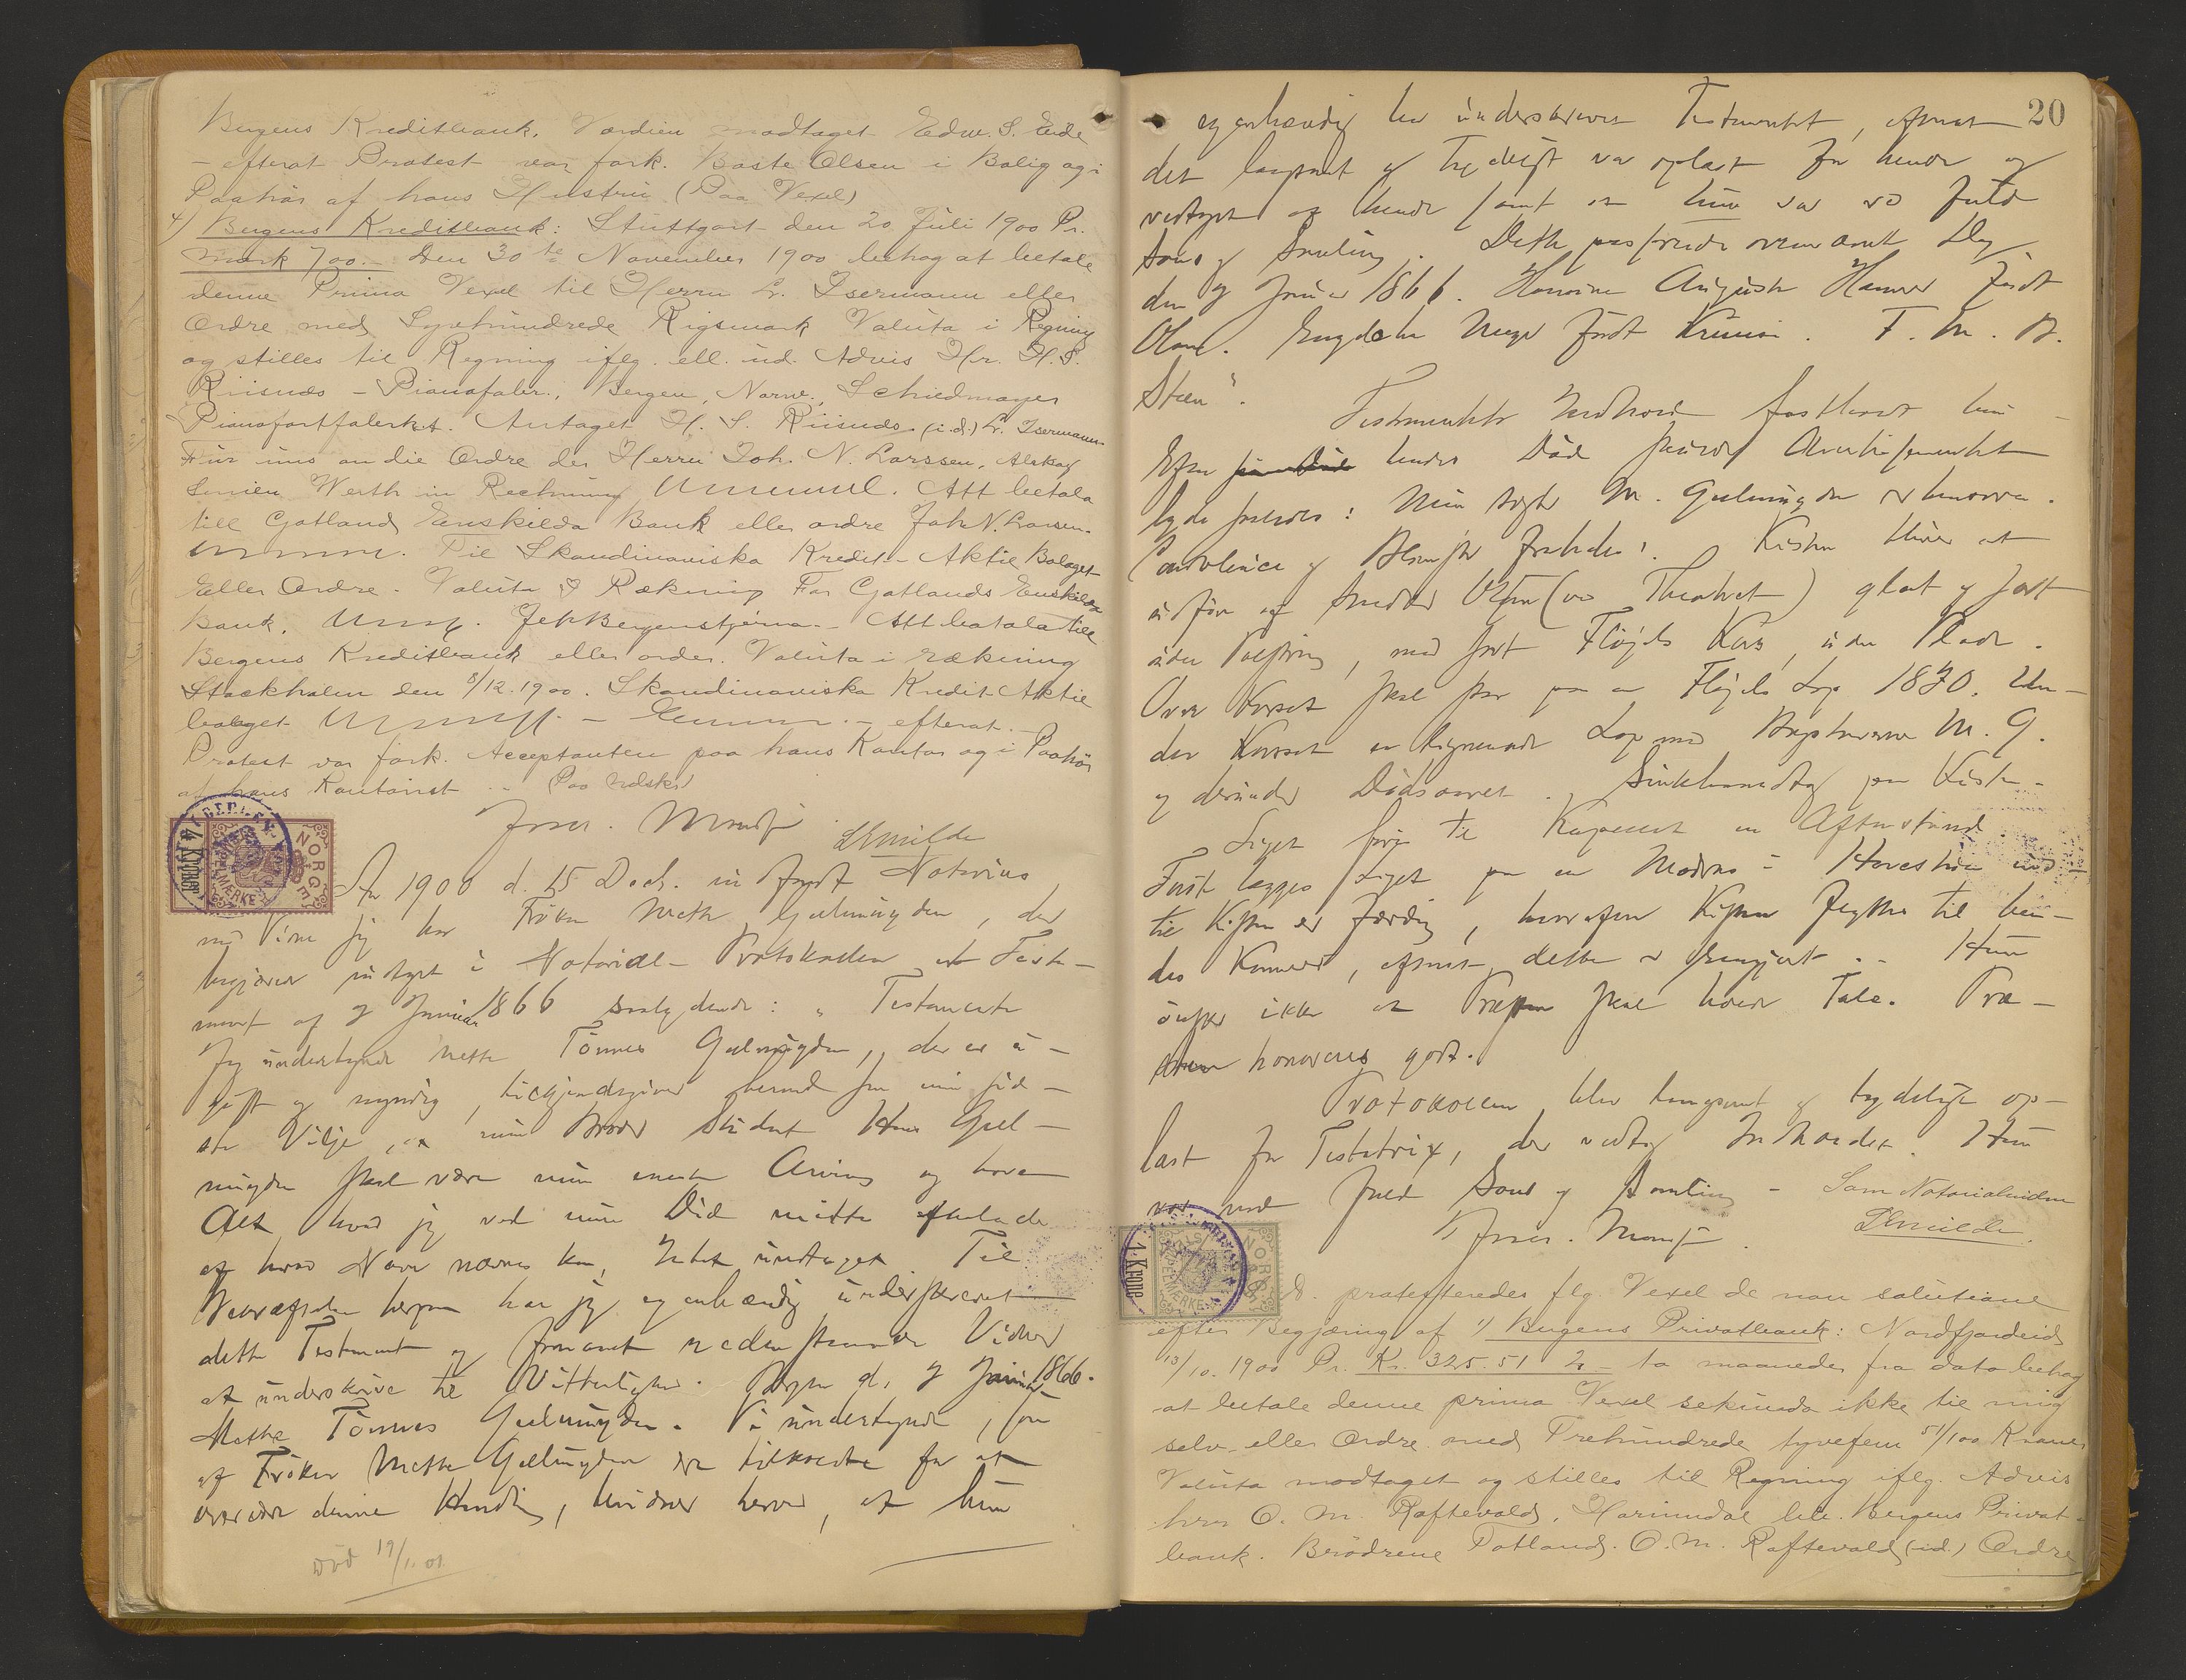 Bergens Kreditbank. Værdien modtaget Edw. S. Eide
- efterat Protest var fork. Baste Olsen i Bolig og i
Paahør af hans Hustru (Paa Vexel)
4) Bergens Kreditbank: Stuttgart den 20 Juli 1900 Pr.
Mark 700.- Den 30te November 1900 behag at betale
denne Prima Vexel til Herrn L. Isermann eller
Ordre med Syvhundrede Rigsmark Valuta i Regning
og stilles til Regning iflg. ell. ud. Advis Hr. H. S.
Riisnæs - Pianofabr., Bergen, Norw., Schiedmayer
Pianofortfabrikk. Antaget H. S. Riisnæs. (i.d.) L. Isermann.
Für uns an die Ordre des Herrn Joh. N. Larssen,
Werth in Rechnung Att betala
till Gotlands Enskilda Bank eller ordre Joh N. Larsen.
Til Skandinaviska Kredit-Aktie Bolaget
Eller Ordre. Valuta i Räkning För Gotlands Enskilda
Bank. Att betala till
Bergens Kreditbank eller order. Valuta i räkning
Stockholm den 8/12.1900. Skandinaviska Kredit Aktie
bolaget - efterat.
Protest var fork. Acceptanten paa hans Kontor og i Paahør
af hans Kontorist - Paa
NORGE
4 Kroner
Aar 1900 d. 15 Dech. indfandt Notarius
med Vidne sig hos Frøken Mette Geelmuyden, der
begjærede indtaget i Notarial-Protokollen et Testa-
ment af 7 Januar 1866 saalydende: „Testamente
Jeg undertegnede Mette Tønnes Geelmuyden, der er u-
gift og myndig, tilkjendegiver herved som min sid-
ste Vilje, at min Broder Student Hans Geel-
muyden skal være min eneste Arving og have
Alt hvad jeg ved min Død maatte efterlade
af hvad Navn nævnes kan, Intet undtaget. Til
Bekræftelse herpaa har jeg egenhændig underskrevet
dette Testament og formaaet nedenstaaende Vidner
at underskrive til Vitterlighed. Bergen d. 7 Januar 1866.
Mette Tønnes Geelmuyden. Vi undertegnede, som
af Frøken Mette Geelmuyden ere tilkaldte for at
overvære denne Handling, bevidner herved, at hun
død 19/1.01.
20
egenhændig har underskrevet Testamentet, efterat
det langsomt og tydeligt var oplæst for hende og
vedtaget af hende samt at hun var ved fuld
Sans og Samling. Dette passerede ovennævnte Dag
den 7 Januar 1866. Hansine Augusta Hammer født
Olsen. Engelche Meyer født Krüson. F. M. B.
Steen".
Testamentets Indhold fastholdt hun -
Efter hendes Død skulde Avertissementet
lyde saaledes: Min Søster M. Geelmuyden er hensovet.
Condolence og Blomster frabedes. Kisten bliver at
udføre af Snedker (ved Theatret) glat og sort
uden Polstring, med sort Fløjels Kors, uden Plade.
Over Korset skal staa paa en Fløjels Løv 1830. Un-
der Korset en lignende Løv med Bogstaverne M. G.
og derunder Dødsaaret.
Liget føres til Kapellet en Aftenstund.
Først lægges Liget paa en Madras
til Kisten er færdig, hvorefter Kisten flyttes til hen-
des Kammer, efterat dette er rengjort. - Hun
ønsker ikke at Præsten skal holde Tale. Præ-
sten honoreres godt.
Protokollen blev langsomt og tydeligt op-
læst for Testatrix, der vedtog Indholdet. Hun
var ved fuld Sans og Samling - Som Notarialvidne
NORGE
1 Krone
D. protesteredes flg. Vexel de non solutione
efter Begjæring af 1) Bergens Privatbank: Nordfjordeid
13/10.1900 Pr. Kr. 325.51 2 - to maaneder fra dato behag
at betale denne prima Vexel sekunda ikke til mig
selv eller Ordre med Trehundrede tyvefem 51/100 Kroner
Valuta modtaget og stilles til Regning iflg. Advis
hrr O. M. Raftevold, Hornindal bet. Bergens Privat-
bank. Brødrene Totland. O. M. Raftevold (i.d.) Ordre